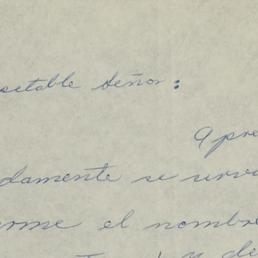 setable Señor:
Apre
damente se serv
rme el nombre